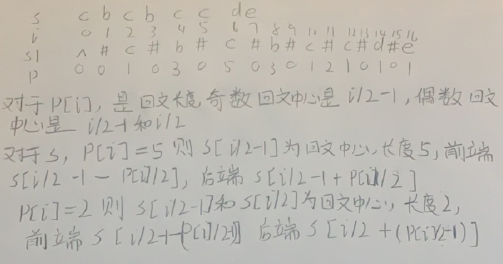 s c b c b c c de
i 0 1 2 3 4 5 6 7 8 9 10 11 12 13 14 15 16
s1 ^ # c # b # c # b # c # c # d # e
p 0 0 1 0 3 0 5 0 3 0 1 2 1 0 1 0 1
对于P[i],是回文长度,奇数回文中心是 i/2-1,偶数回文
中心是 i/2-1和i/2
对于s, P[i]=5 则 s[i/2-1]为回文中心,长度5,前端
s[i/2-1-P[i]/2],后端 s[i/2-1+P[i]/2]
P[i]=2 则 s[i/2-1]和s[i/2]为回文中心,长度2,
前端 s[i/2-1-(P[i]/2-1)] 后端 s[i/2+(P[i]/2-1)]